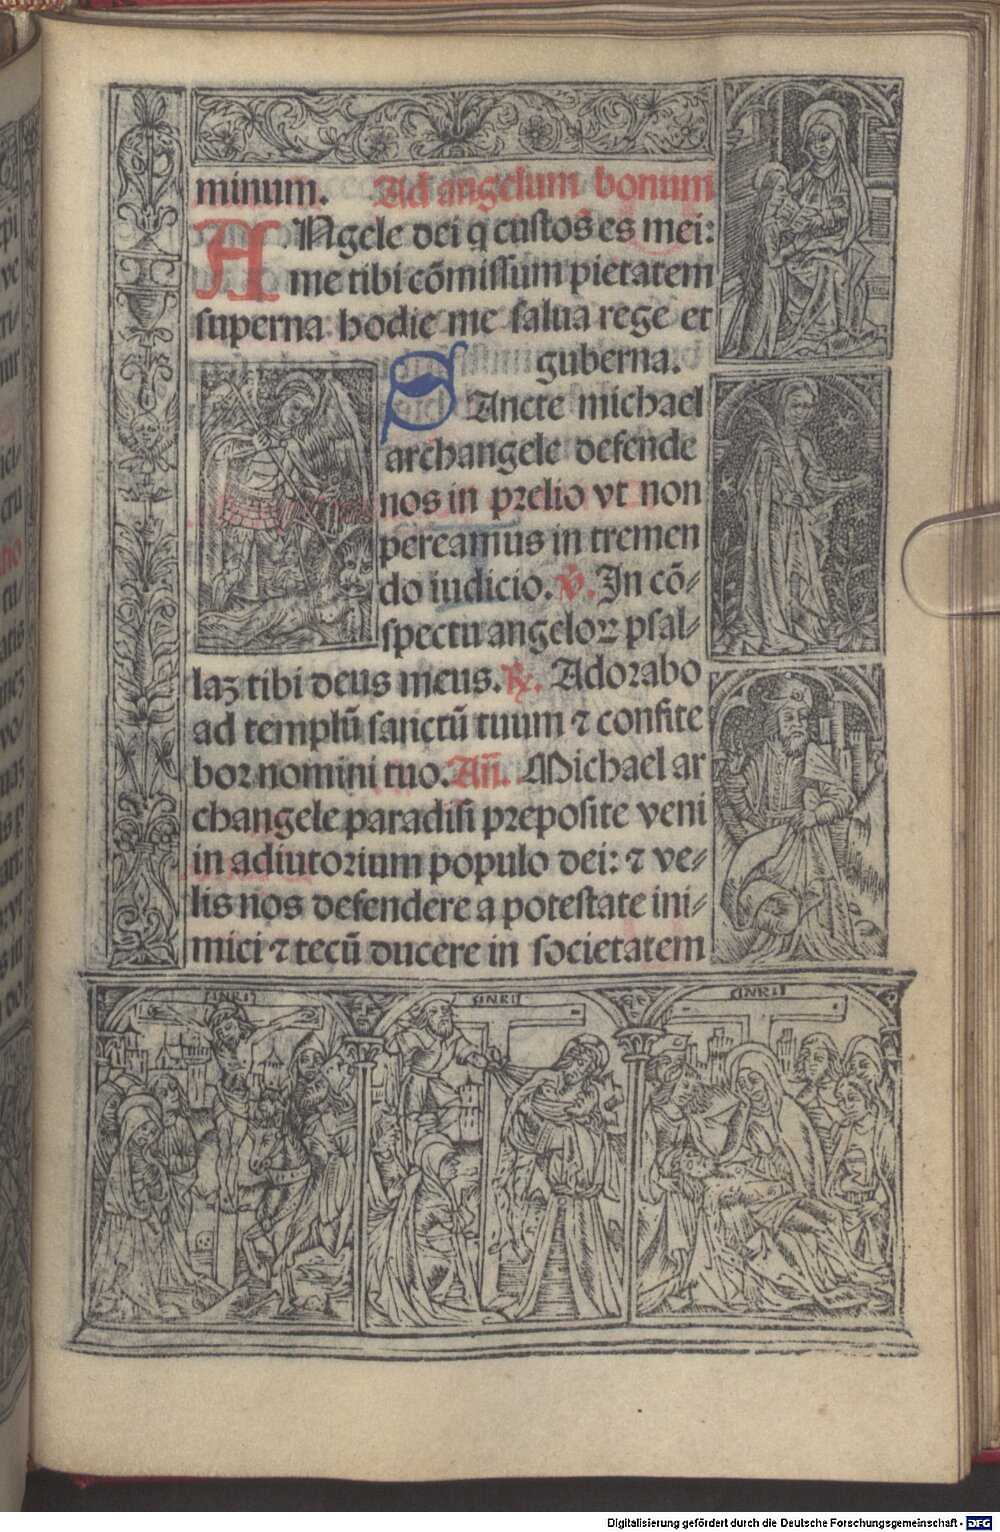 minum. Ad angelum bonum
ANgele dei q̃ custos es mei:
me tibi cõmissum pietatem
superna: hodie me salua rege et
guberna.
SAncte michael
archangele defende
nos in prelio vt non
pereamus in tremen
do iudicio. ℣. In cõ⸗
spectu angeloꝝ psal⸗
laꝫ tibi deus meus. ℟. Adorabo
ad templũ sanctũ tuum ⁊ confite
bor nomini tuo. Añ. Michael ar
changele paradisi preposite veni
in adiutorium populo dei: ⁊ ve⸗
lis nos defendere a potestate ini⸗
mici ⁊ tecũ ducere in societatem
INRI
INRI
INRI
Digitalisierung gefördert durch die Deutsche Forschungsgemeinschaft - DFG